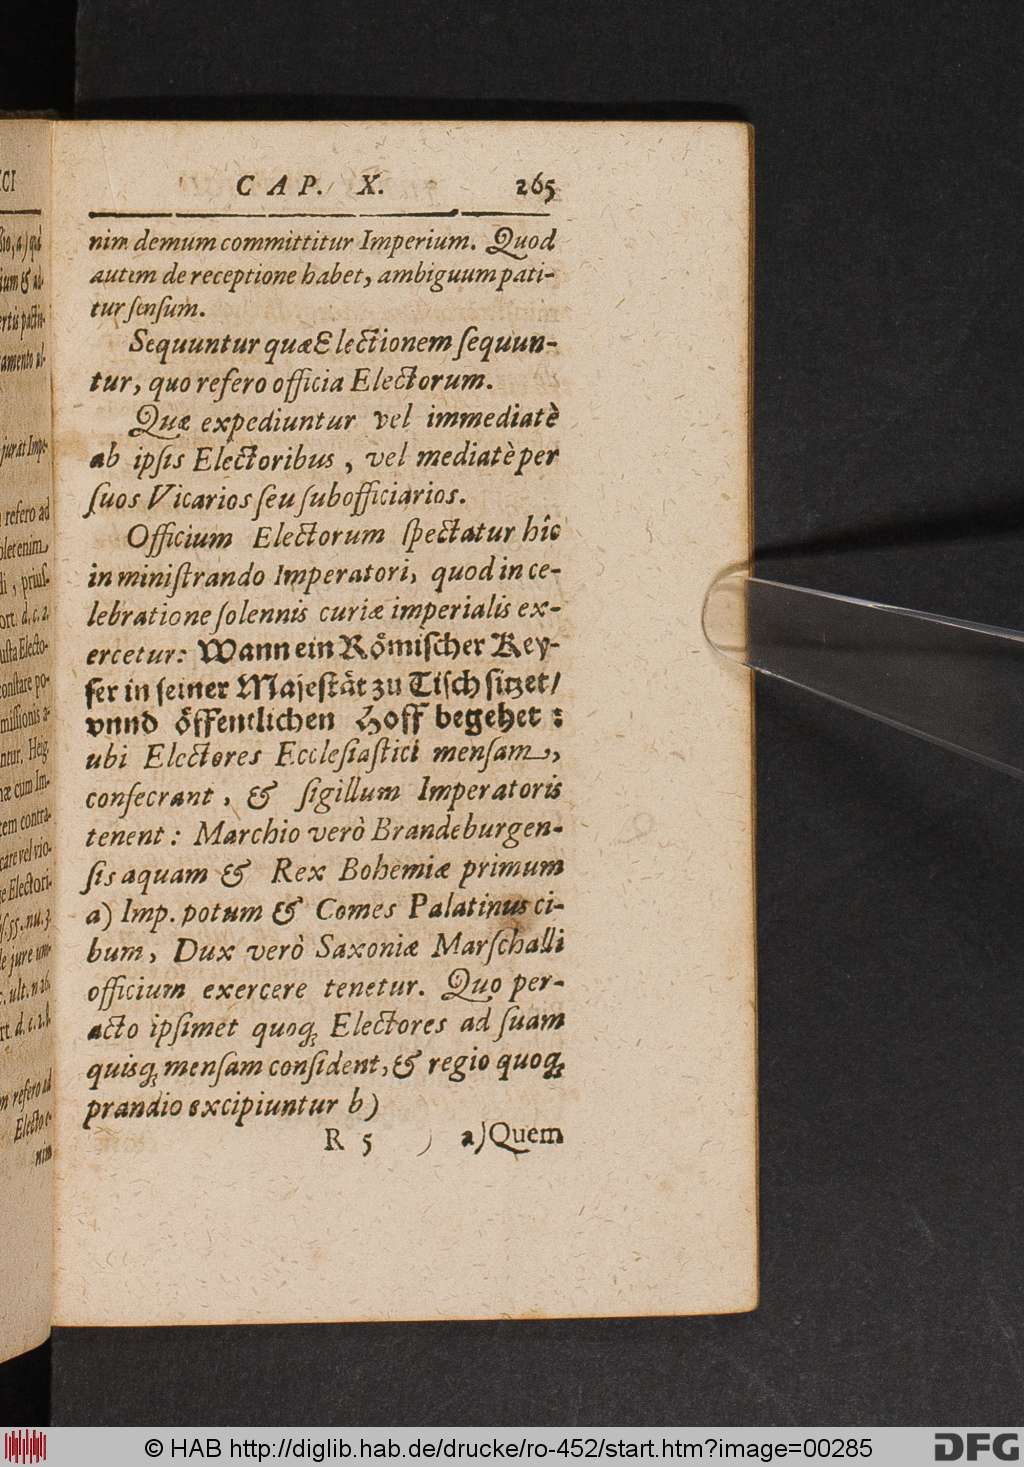 CAP. X. 265
nim demum committitur Imperium. Quod
autem de receptione habet, ambiguum pati-
tur ſenſum.
Sequuntur quæ Electionem ſequun-
tur, quo refero officia Electorum.
Quæ expediuntur vel immediatè
ab ipſis Electoribus, vel mediatè per
ſuos Vicarios ſeu ſubofficiarios.
Officium Electorum ſpectatur hîc
in miniſtrando Imperatori, quod in ce-
lebratione ſolennis curiæ imperialis ex-
ercetur: Wann ein Römiſcher Key-
ſer in ſeiner Majeſtät zu Tiſch ſitzet/
vnnd öffentlichen Hoff begehet:
ubi Electores Eccleſiaſtici menſam,
conſecrant, & ſigillum Imperatoris
tenent: Marchio verò Brandeburgen-
ſis aquam & Rex Bohemiæ primum
a) Imp. potum & Comes Palatinus ci-
bum, Dux verò Saxoniæ Marſchalli
officium exercere tenetur. Quo per-
acto ipſimet quoq; Electores ad ſuam
quisq; menſam conſident, & regio quoq;
prandio excipiuntur b)
R 5 ) a) Quem
© HAB http://diglib.hab.de/drucke/ro-452/start.htm?image=00285
DFG